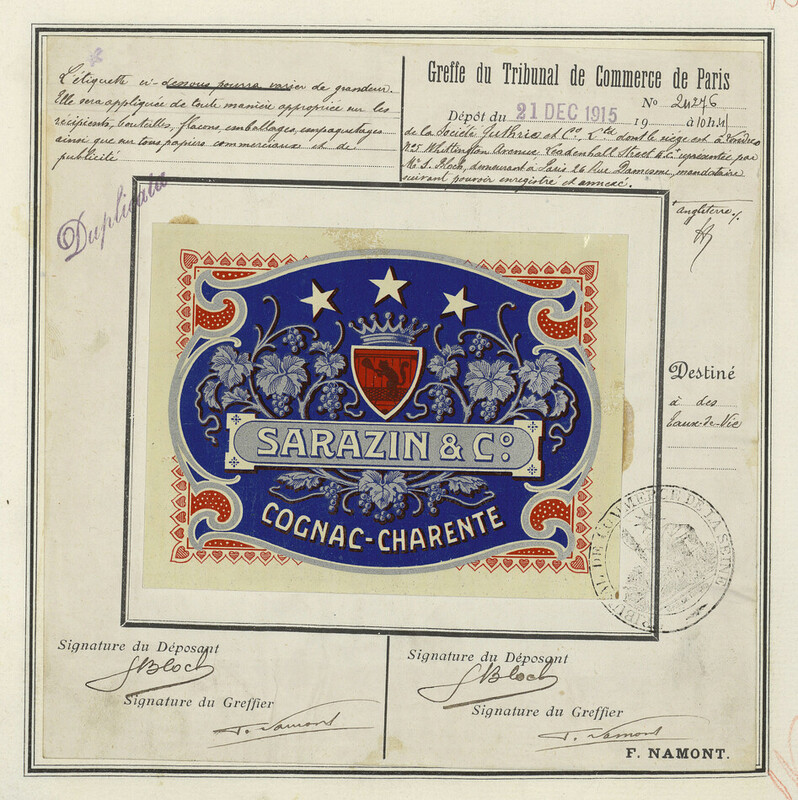 L'étiquette ci-dessous pourra varier de grandeur.
Elle sera appliquée de toute manière appropriée sur les
récipients, bouteilles, flacons, emballages, empaquetages
ainsi que sur tous papiers commerciaux et de
publicité
Duplicata
Greffe du Tribunal de Commerce de Paris
No 24276
Dépôt du 21 DEC 1915 19 à 10h
de la Société Guthrie et Co, Ltd dont le siège est à Londres
No 5 Whittington Avenue Leadenhall Street E.C. représentée par
Mr S. Bloch, demeurant à Paris 26 Rue mandataire
suivant pouvoir enregistré et annexé.
Angleterre
Destiné
à des
Eaux-de-Vie
SARAZIN & Co.
COGNAC-CHARENTE
TRIBUNAL DE COMMERCE DE LA SEINE
Signature du Déposant
SBloch
Signature du Greffier
F. Namont
Signature du Déposant
SBloch
Signature du Greffier
F. Namont
F. NAMONT.